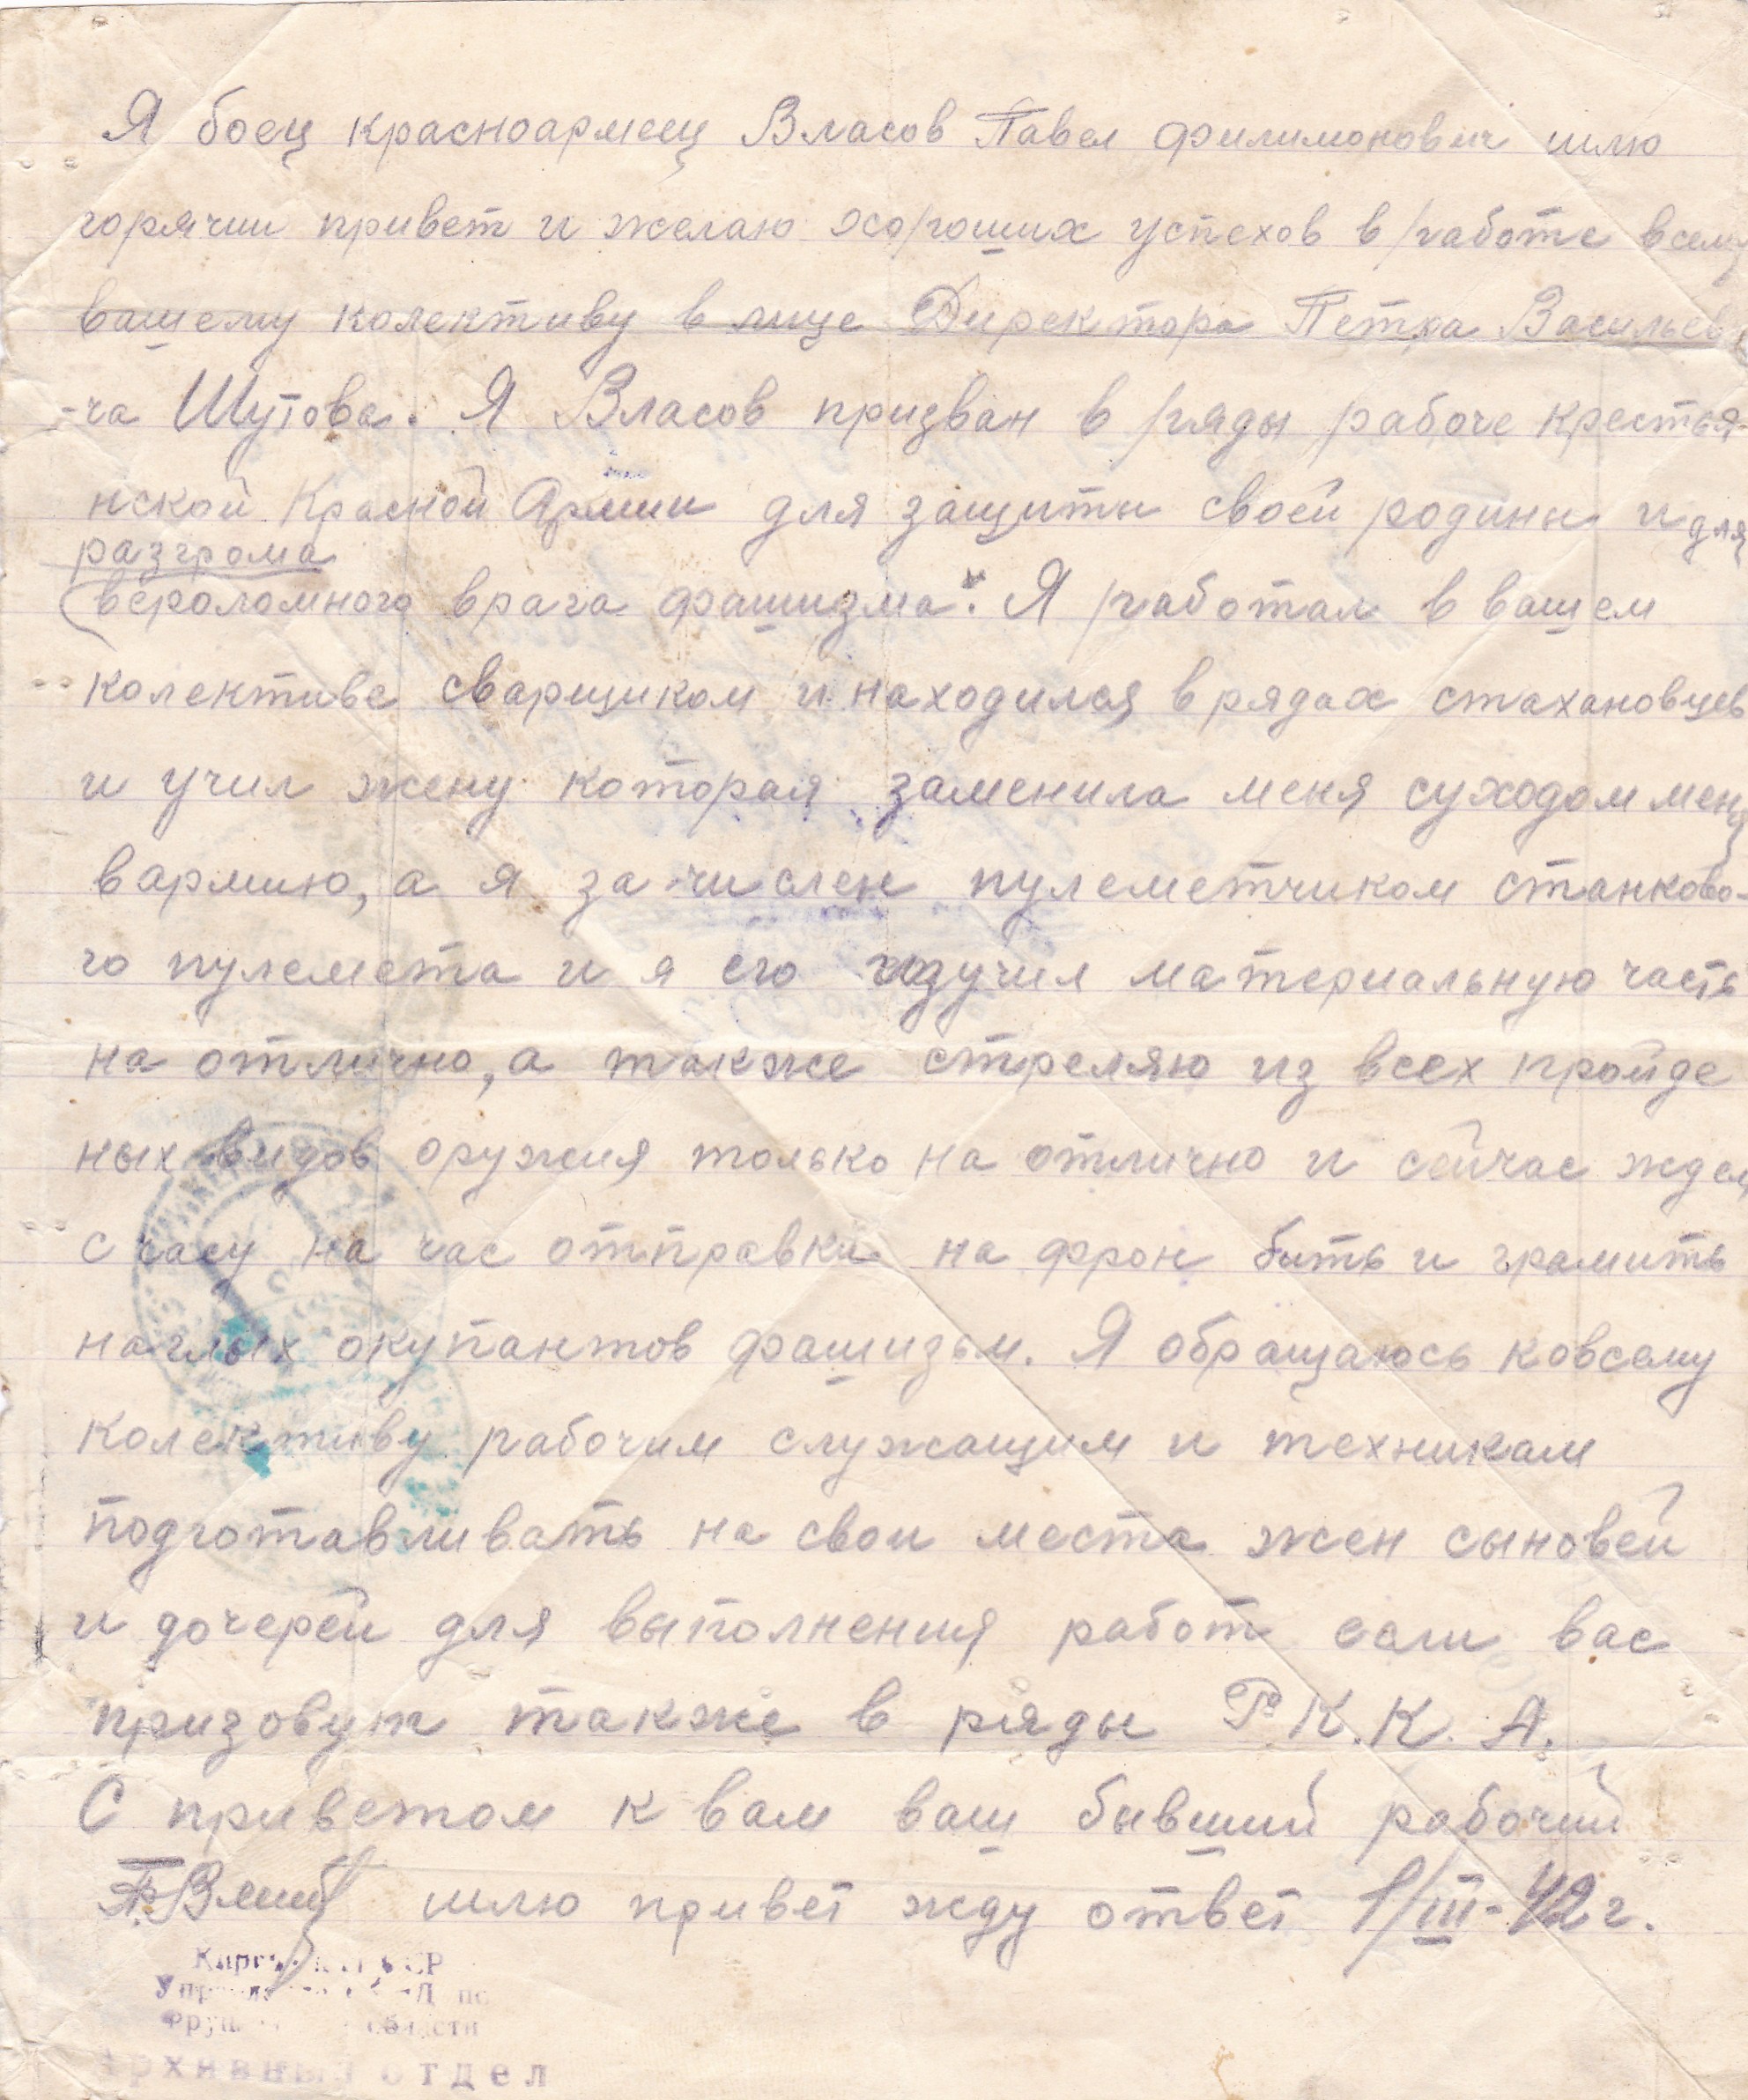 Я боец красноармеец Власов Павел Филимонович шлю
горячии привет и желаю хороших успехов в работе всему
вашему колективу в лице Директора Петра Васильеви
-ча Шутова. Я Власов призван в ряды рабоче крестья-
нской Красной Армии для защиты своей родины и для
разгрома
вероломного врага фашизма. Я работал в вашем
колективе сварщиком и находился в рядах стахановцев
и учил жену которая заменила меня суходом меня
вармию, а я зачислен пулеметчиком станково-
го пулемета и я его изучил материальную часть
на отлично, а также стреляю из всех пройде
ных видов оружия только на отлично и сейчас ждем
с часу на час отправки на фрон бить и грамить
наглых окупантов фашизьм. Я обращаюсь ковсему
колективу рабочим служащим и техникам
подготавливать на свои места жен сыновей
и дочерей для выполнения работ если вас
призовут также в ряды Р.К.К.А.
С приветом к вам ваш бывший рабочий
шлю привет жду ответ 1/III-42 г.
Архивный отдел